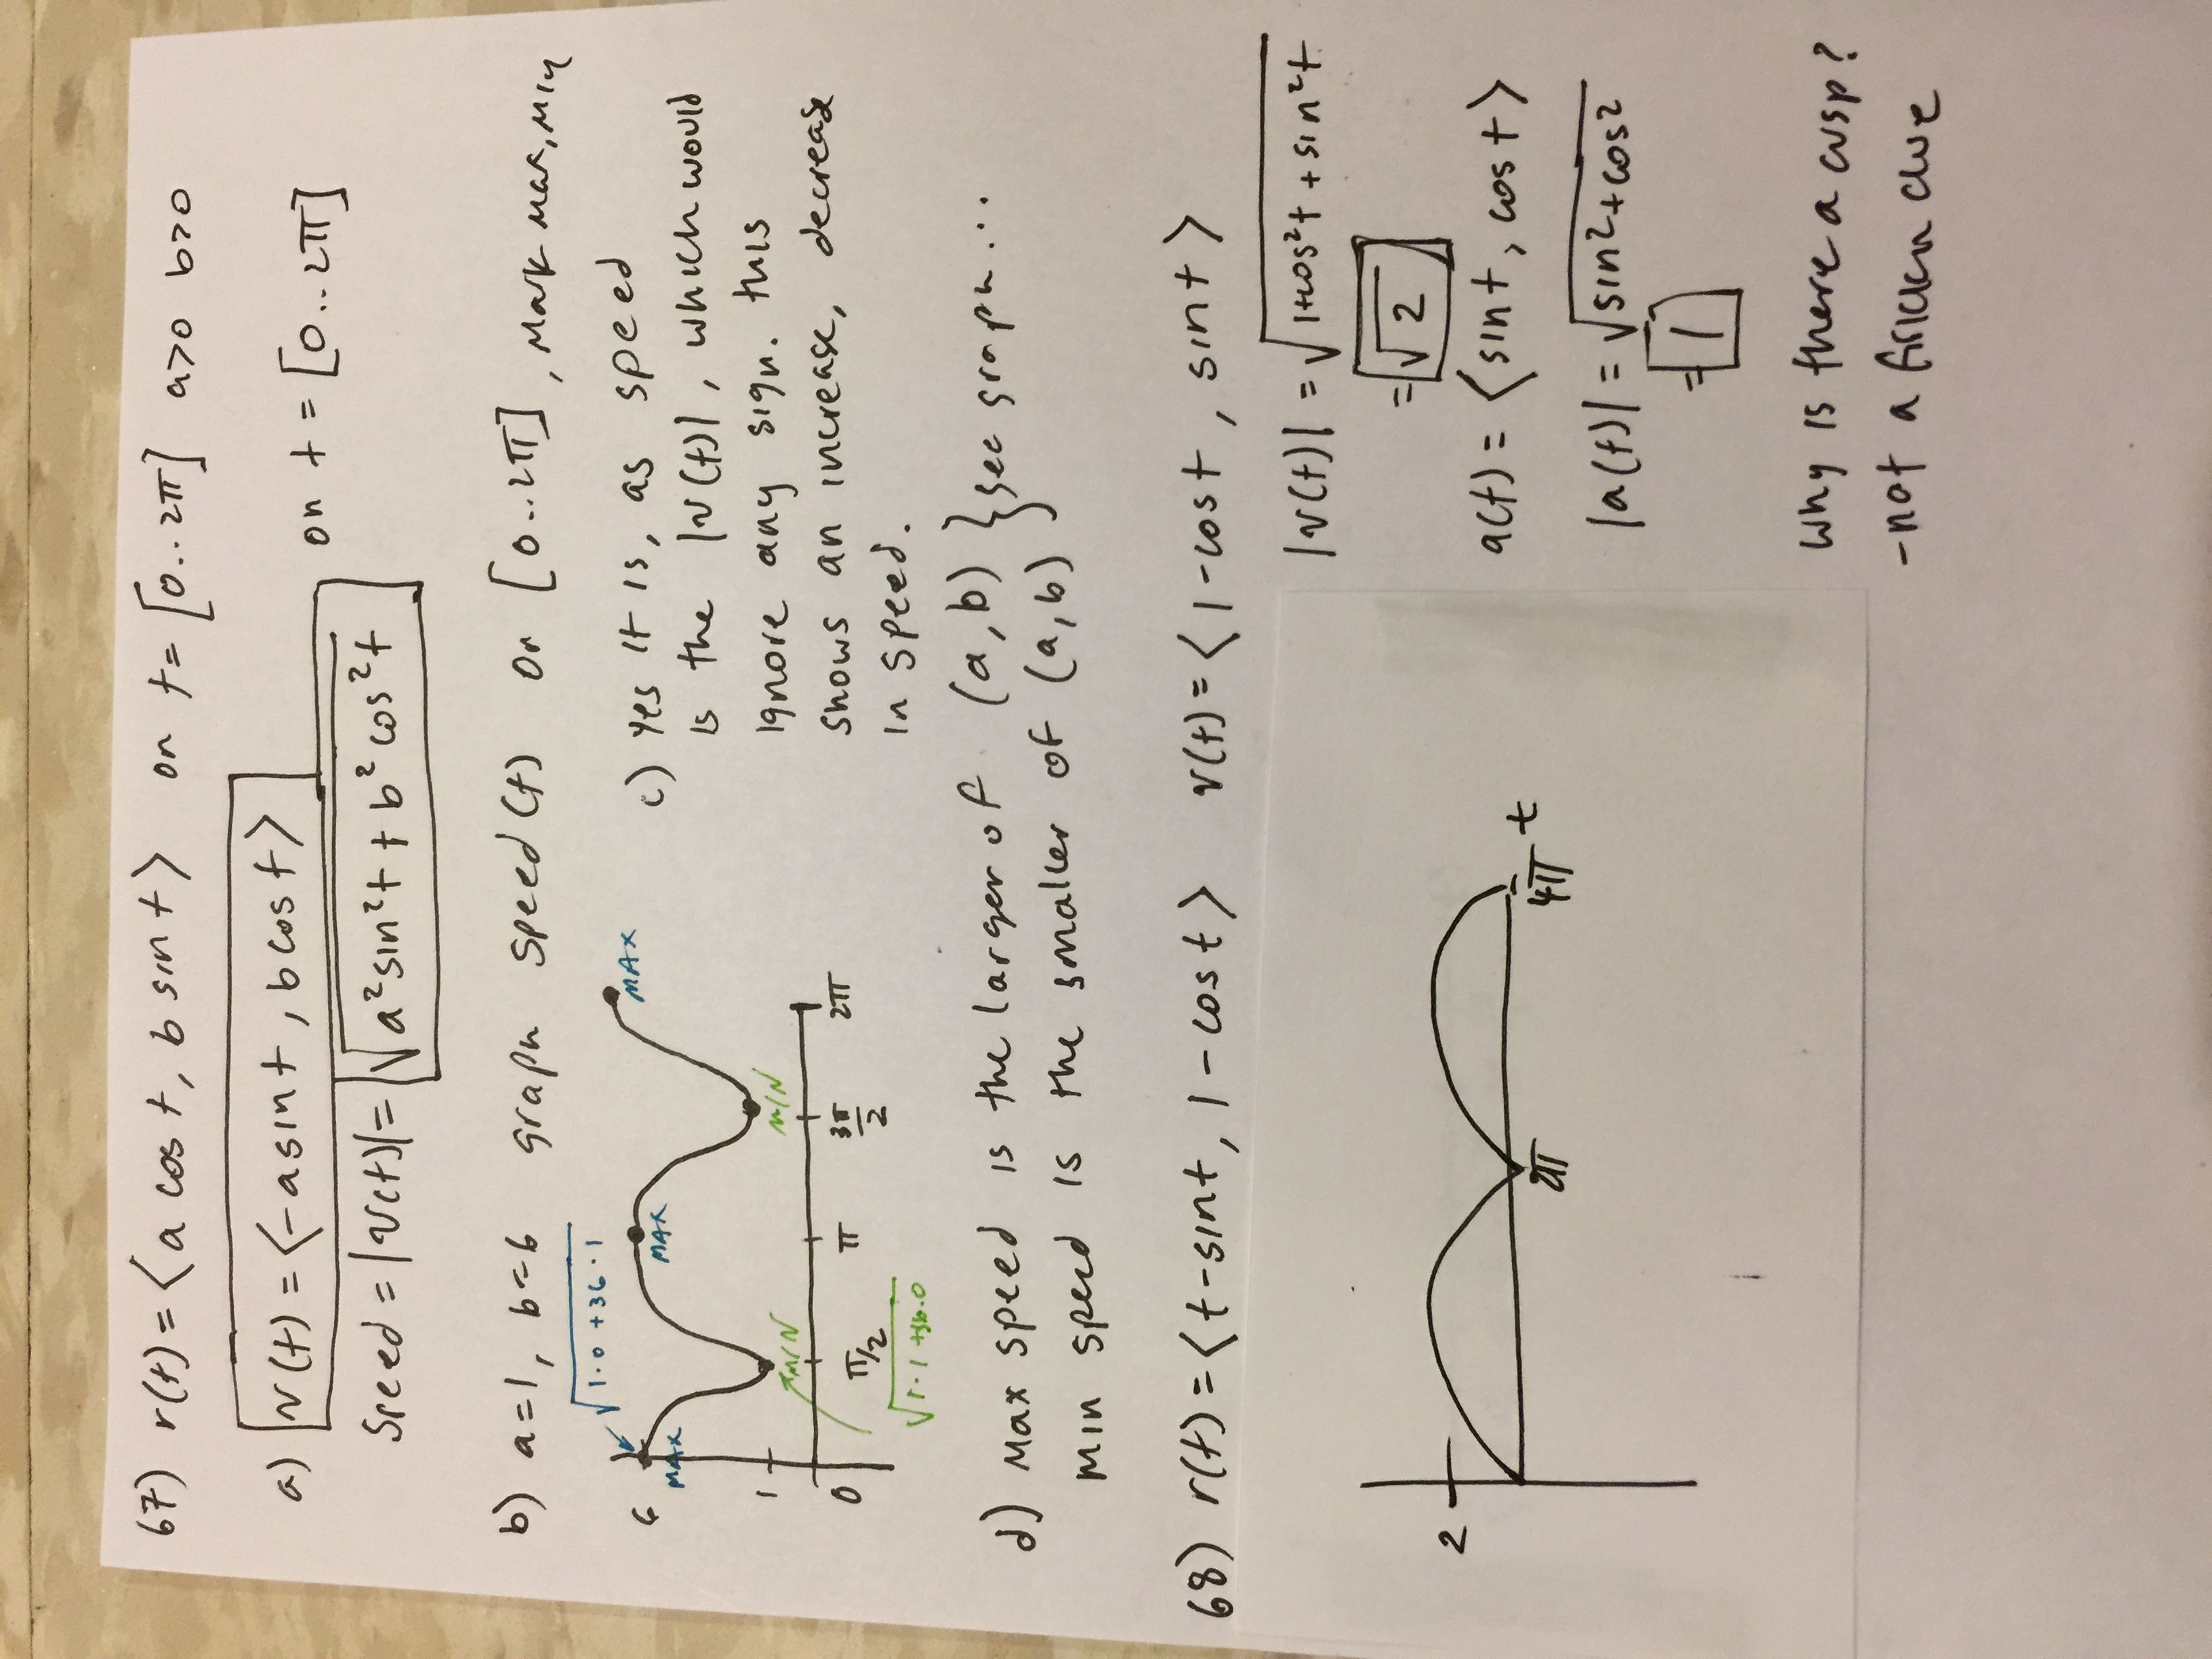 67) r(t) = ⟨a cos t, b sin t⟩ on t = [0..2π] a>0 b>0
a) v(t) = ⟨-a sin t, b cos t⟩ on t = [0..2π]
Speed = |v(t)| = √(a² sin² t + b² cos² t)
b) a=1, b=6 graph speed(t) on [0..2π], mark max, min
√(1·0 + 36·1)
6
MAX
MAX
MAX
1
MIN
MIN
0
π/2
π
3π/2
2π
√(1·1 + 36·0)
c) Yes it is, as speed
is the |v(t)|, which would
ignore any sign. this
shows an increase, decrease
in speed.
d) Max speed is the larger of (a,b) } see graph...
Min speed is the smaller of (a,b)
68) r(t) = ⟨t-sin t, 1-cos t⟩ v(t) = ⟨1-cos t, sin t⟩
2
2π
4π
t
|v(t)| = √(1+cos² t + sin² t)
= √2
a(t) = ⟨sin t, cos t⟩
|a(t)| = √(sin² + cos²)
= 1
why is there a cusp?
-not a frickn clue